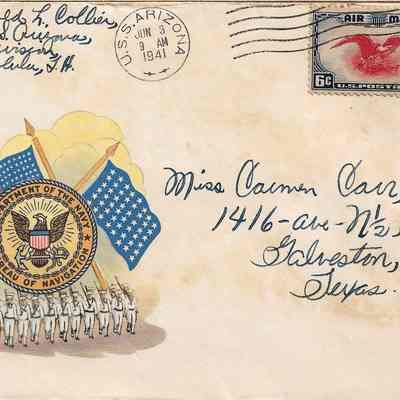 L. Collier,
Arizona,
Honolulu, T.H.
U.S.S. ARIZONA
JUN 3
9 AM
1941
AIR M
6¢
U.S. POSTA
DEPARTMENT OF THE NAVY
BUREAU OF NAVIGATION
Miss Carmen Carr,
1416-ave-N½,
Galveston,
Texas.